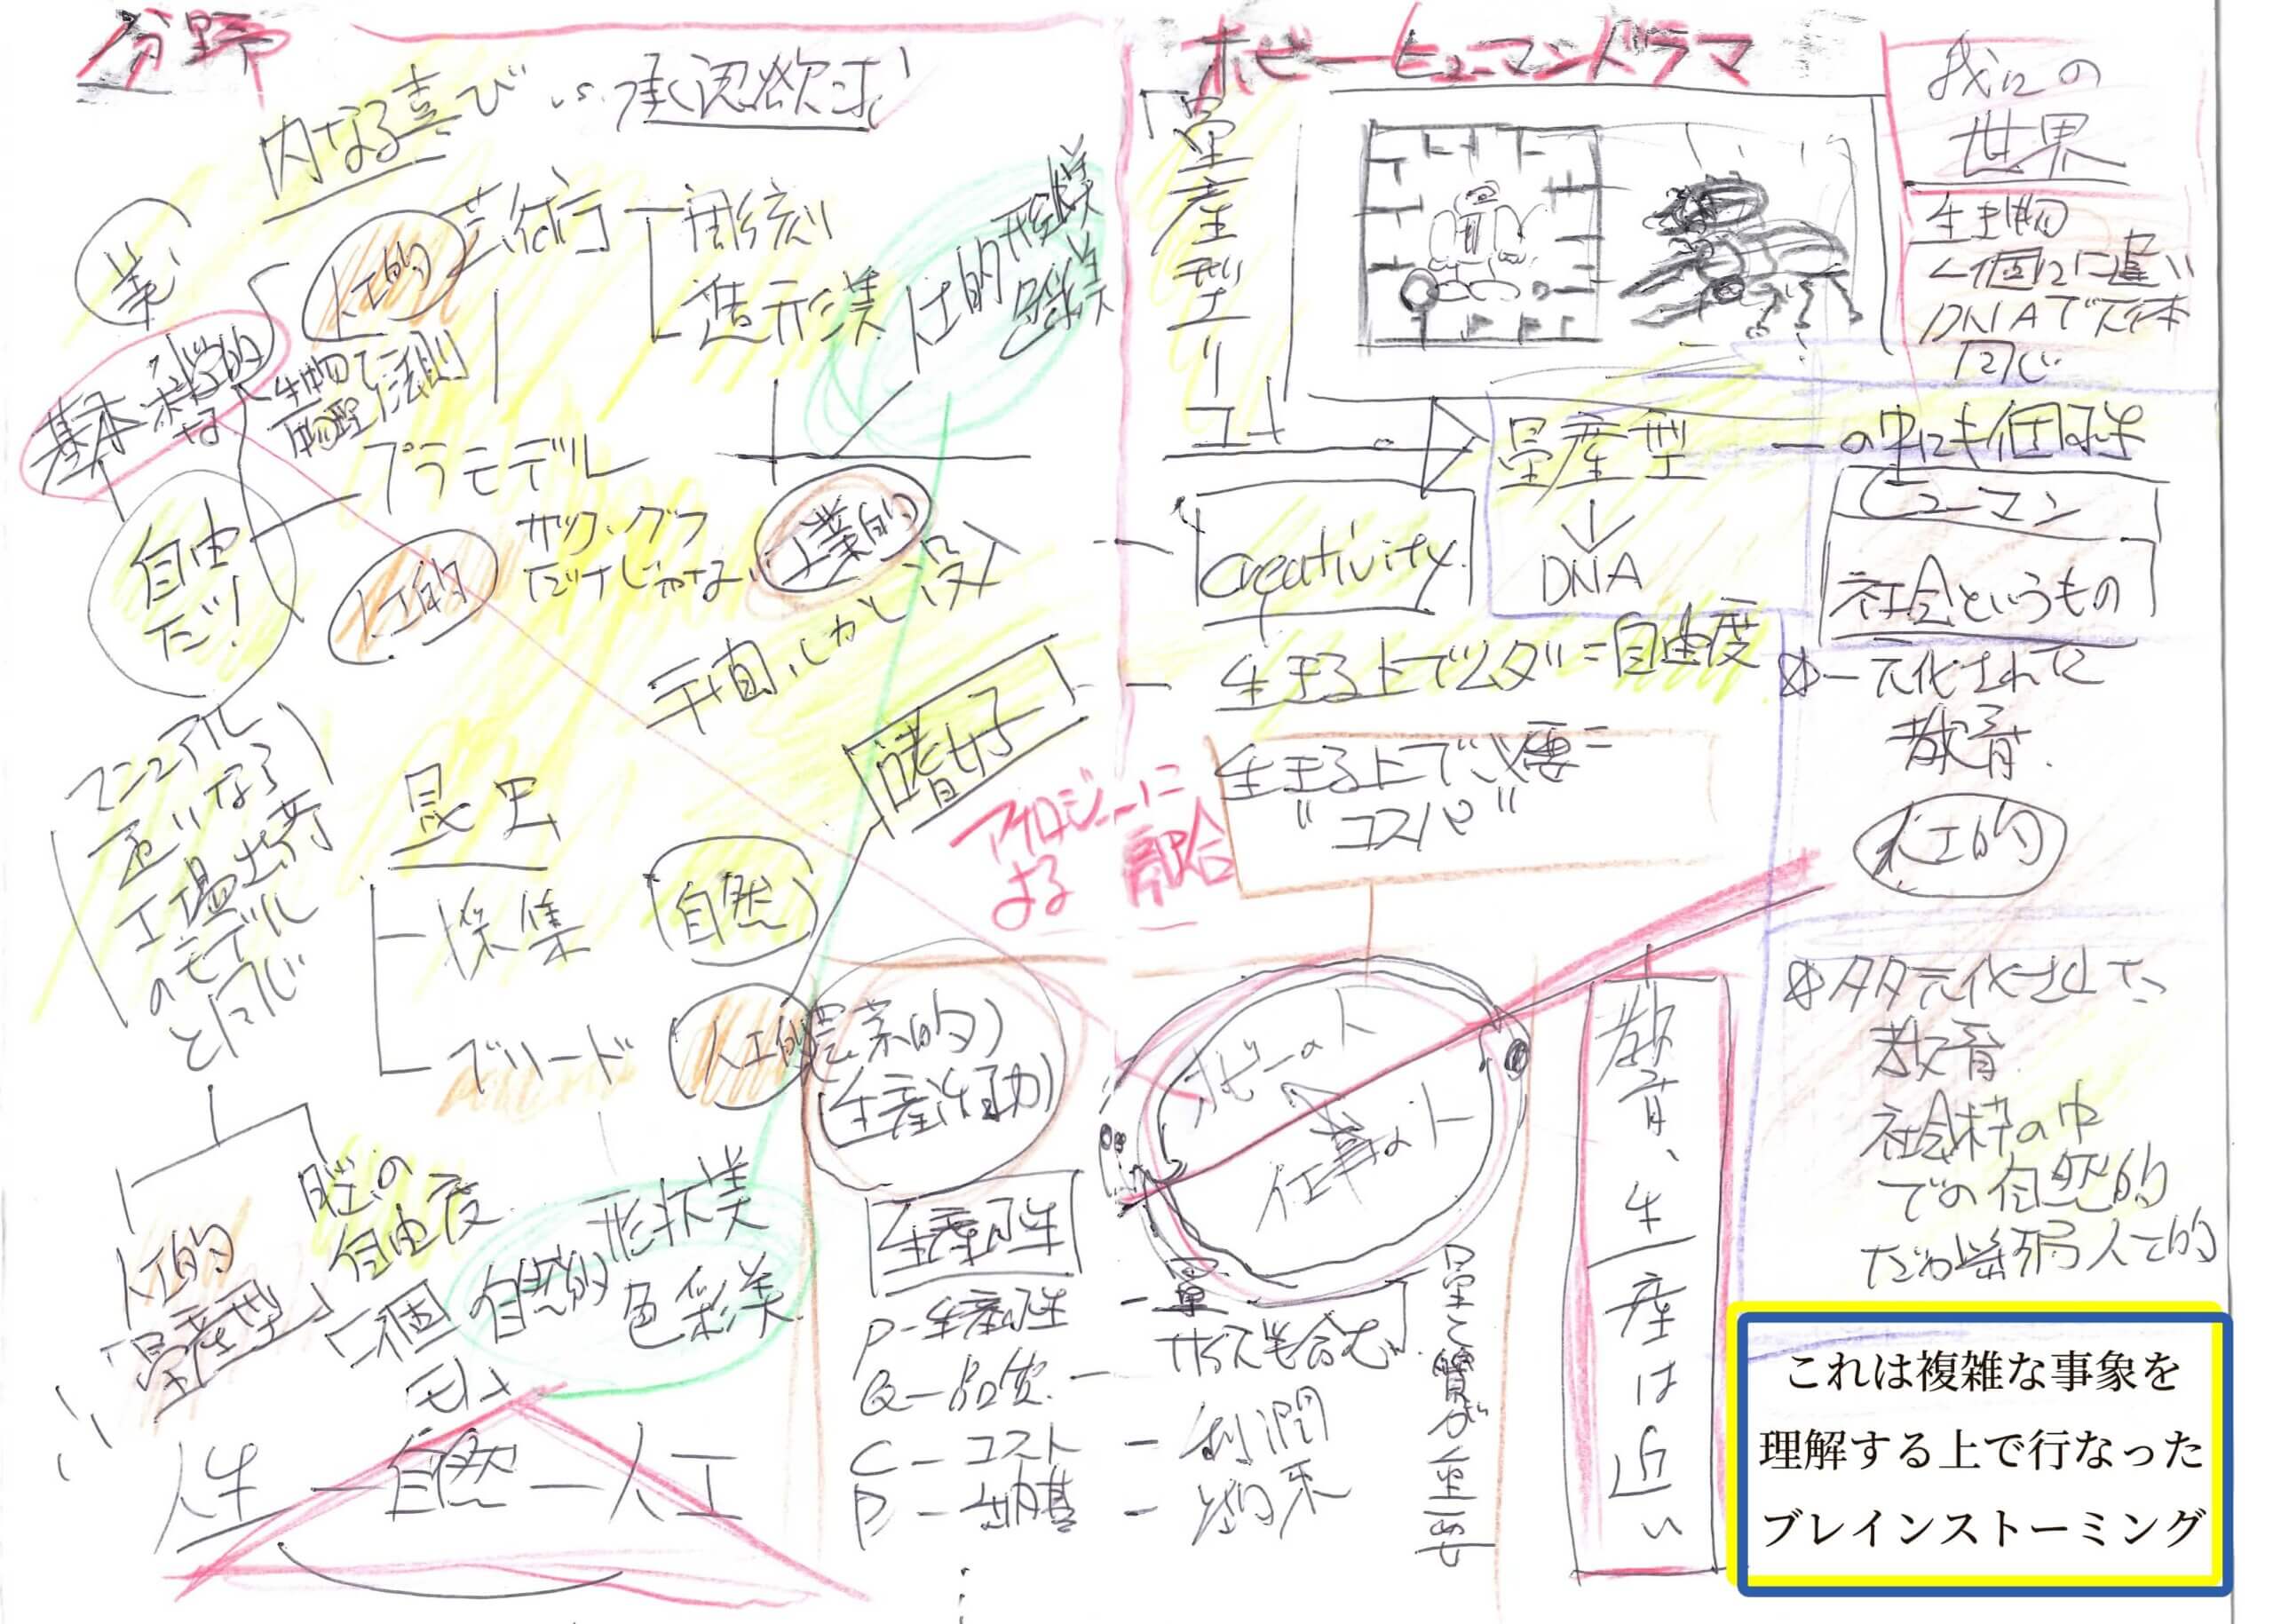 分野
内なる喜び vs 承認欲求
業
人工的
芸術
彫刻
造形美
人工的 形状美
色彩美
基本 科学的な
生物 物理 で法則
プラモデル
自由だ!
人工的
ガッコングラ
だけじゃない
工業的
嗜好
マニュアル
通りなら
工場出荷
のモデル
と同じ
昆虫
採集
自然
ブリード
人工的
農業的
生産活動
人工的
「量産型」
脳の
自由度
「個
自然的
形状美
色彩美
人生 ー 自然 ー 人工
生産性
P-生産性 - 量
サイズも含む
Q-品質 -
C-コスト - 利潤
D-納期 - 約束
量と質が重要
ホビーヒューマンドラマ
「量産型リュー
我々の
世界
生き物
個々に違い
DNAで大体
同じ
量産型 ー の中にも個性
DNA
creativity
生きる上でムダ=自由度
生きる上で必要=
"コスパ"
アナロジーに
よる 融合
ヒューマン
社会というもの
一元化された
教育
人工的
多元化された
教育
社会枠の中
での自然的
だが脆弱 人工的
ホビーの人
仕事の人
教育、生産は近い
これは複雑な事象を
理解する上で行なった
ブレインストーミング